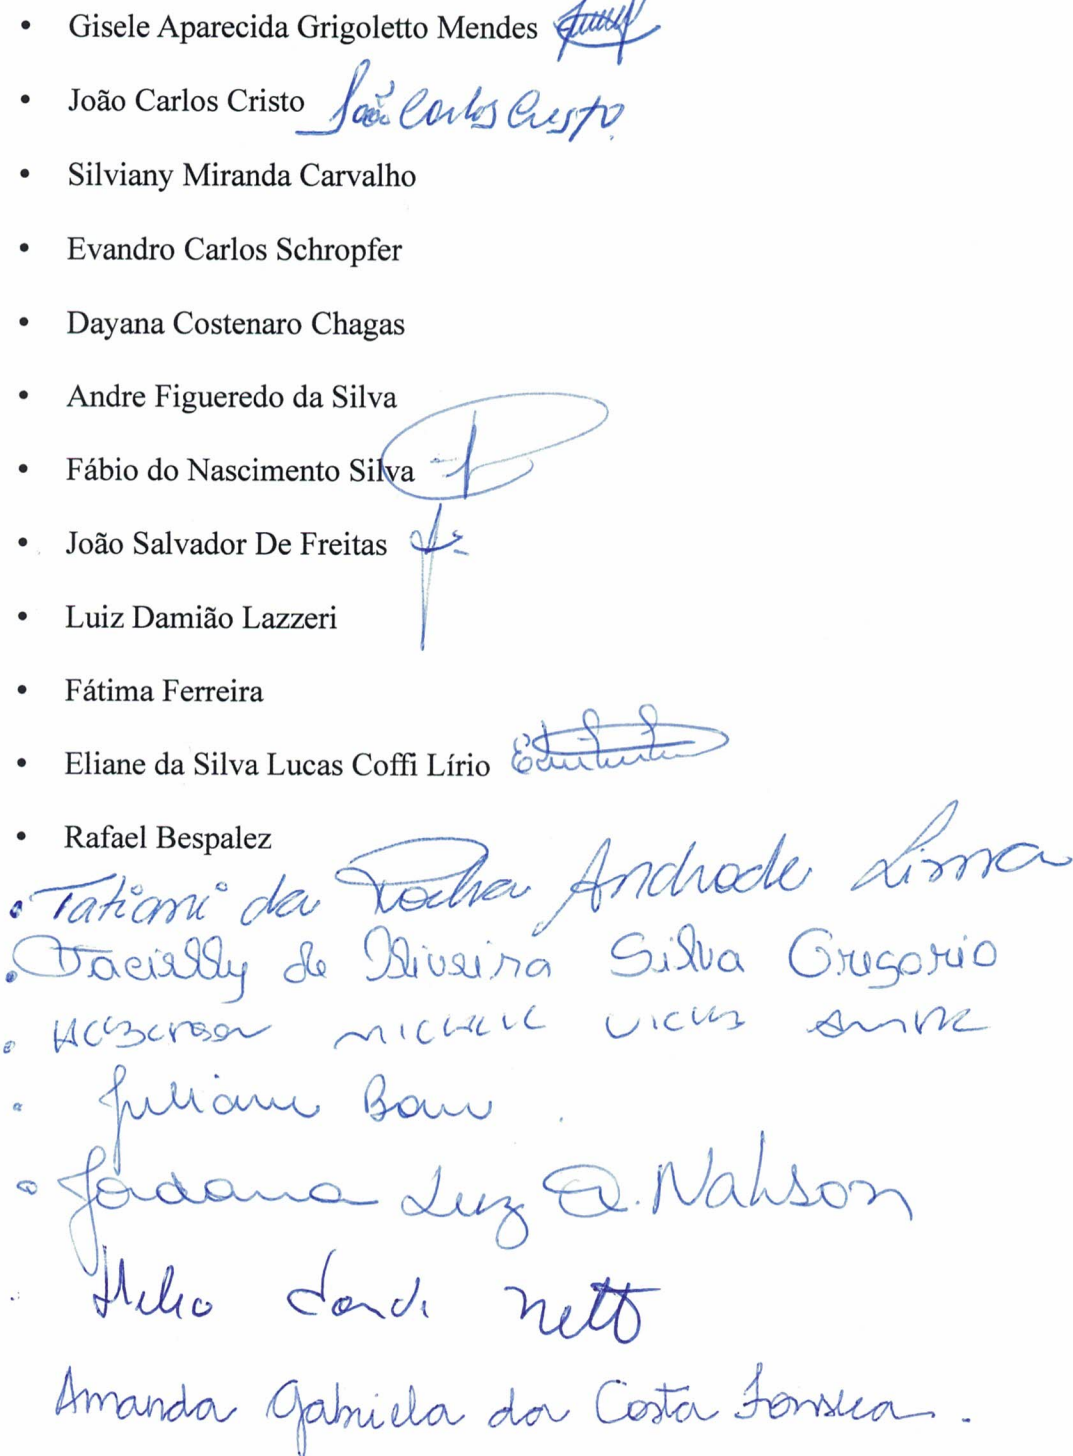 • Gisele Aparecida Grigoletto Mendes
• João Carlos Cristo João Carlos Cristo
• Silviany Miranda Carvalho
• Evandro Carlos Schropfer
• Dayana Costenaro Chagas
• Andre Figueredo da Silva
• Fábio do Nascimento Silva
• João Salvador De Freitas
• Luiz Damião Lazzeri
• Fátima Ferreira
• Eliane da Silva Lucas Coffi Lírio
• Rafael Bespalez
• Tatiani da Rocha Andrade Lima
• Jacielly de Oliveira Silva Gregorio
• Michele
• Juliane
• Jordana Luz Q. Nahson
• Helio Netto
Amanda Gabriela da Costa Fonseca.